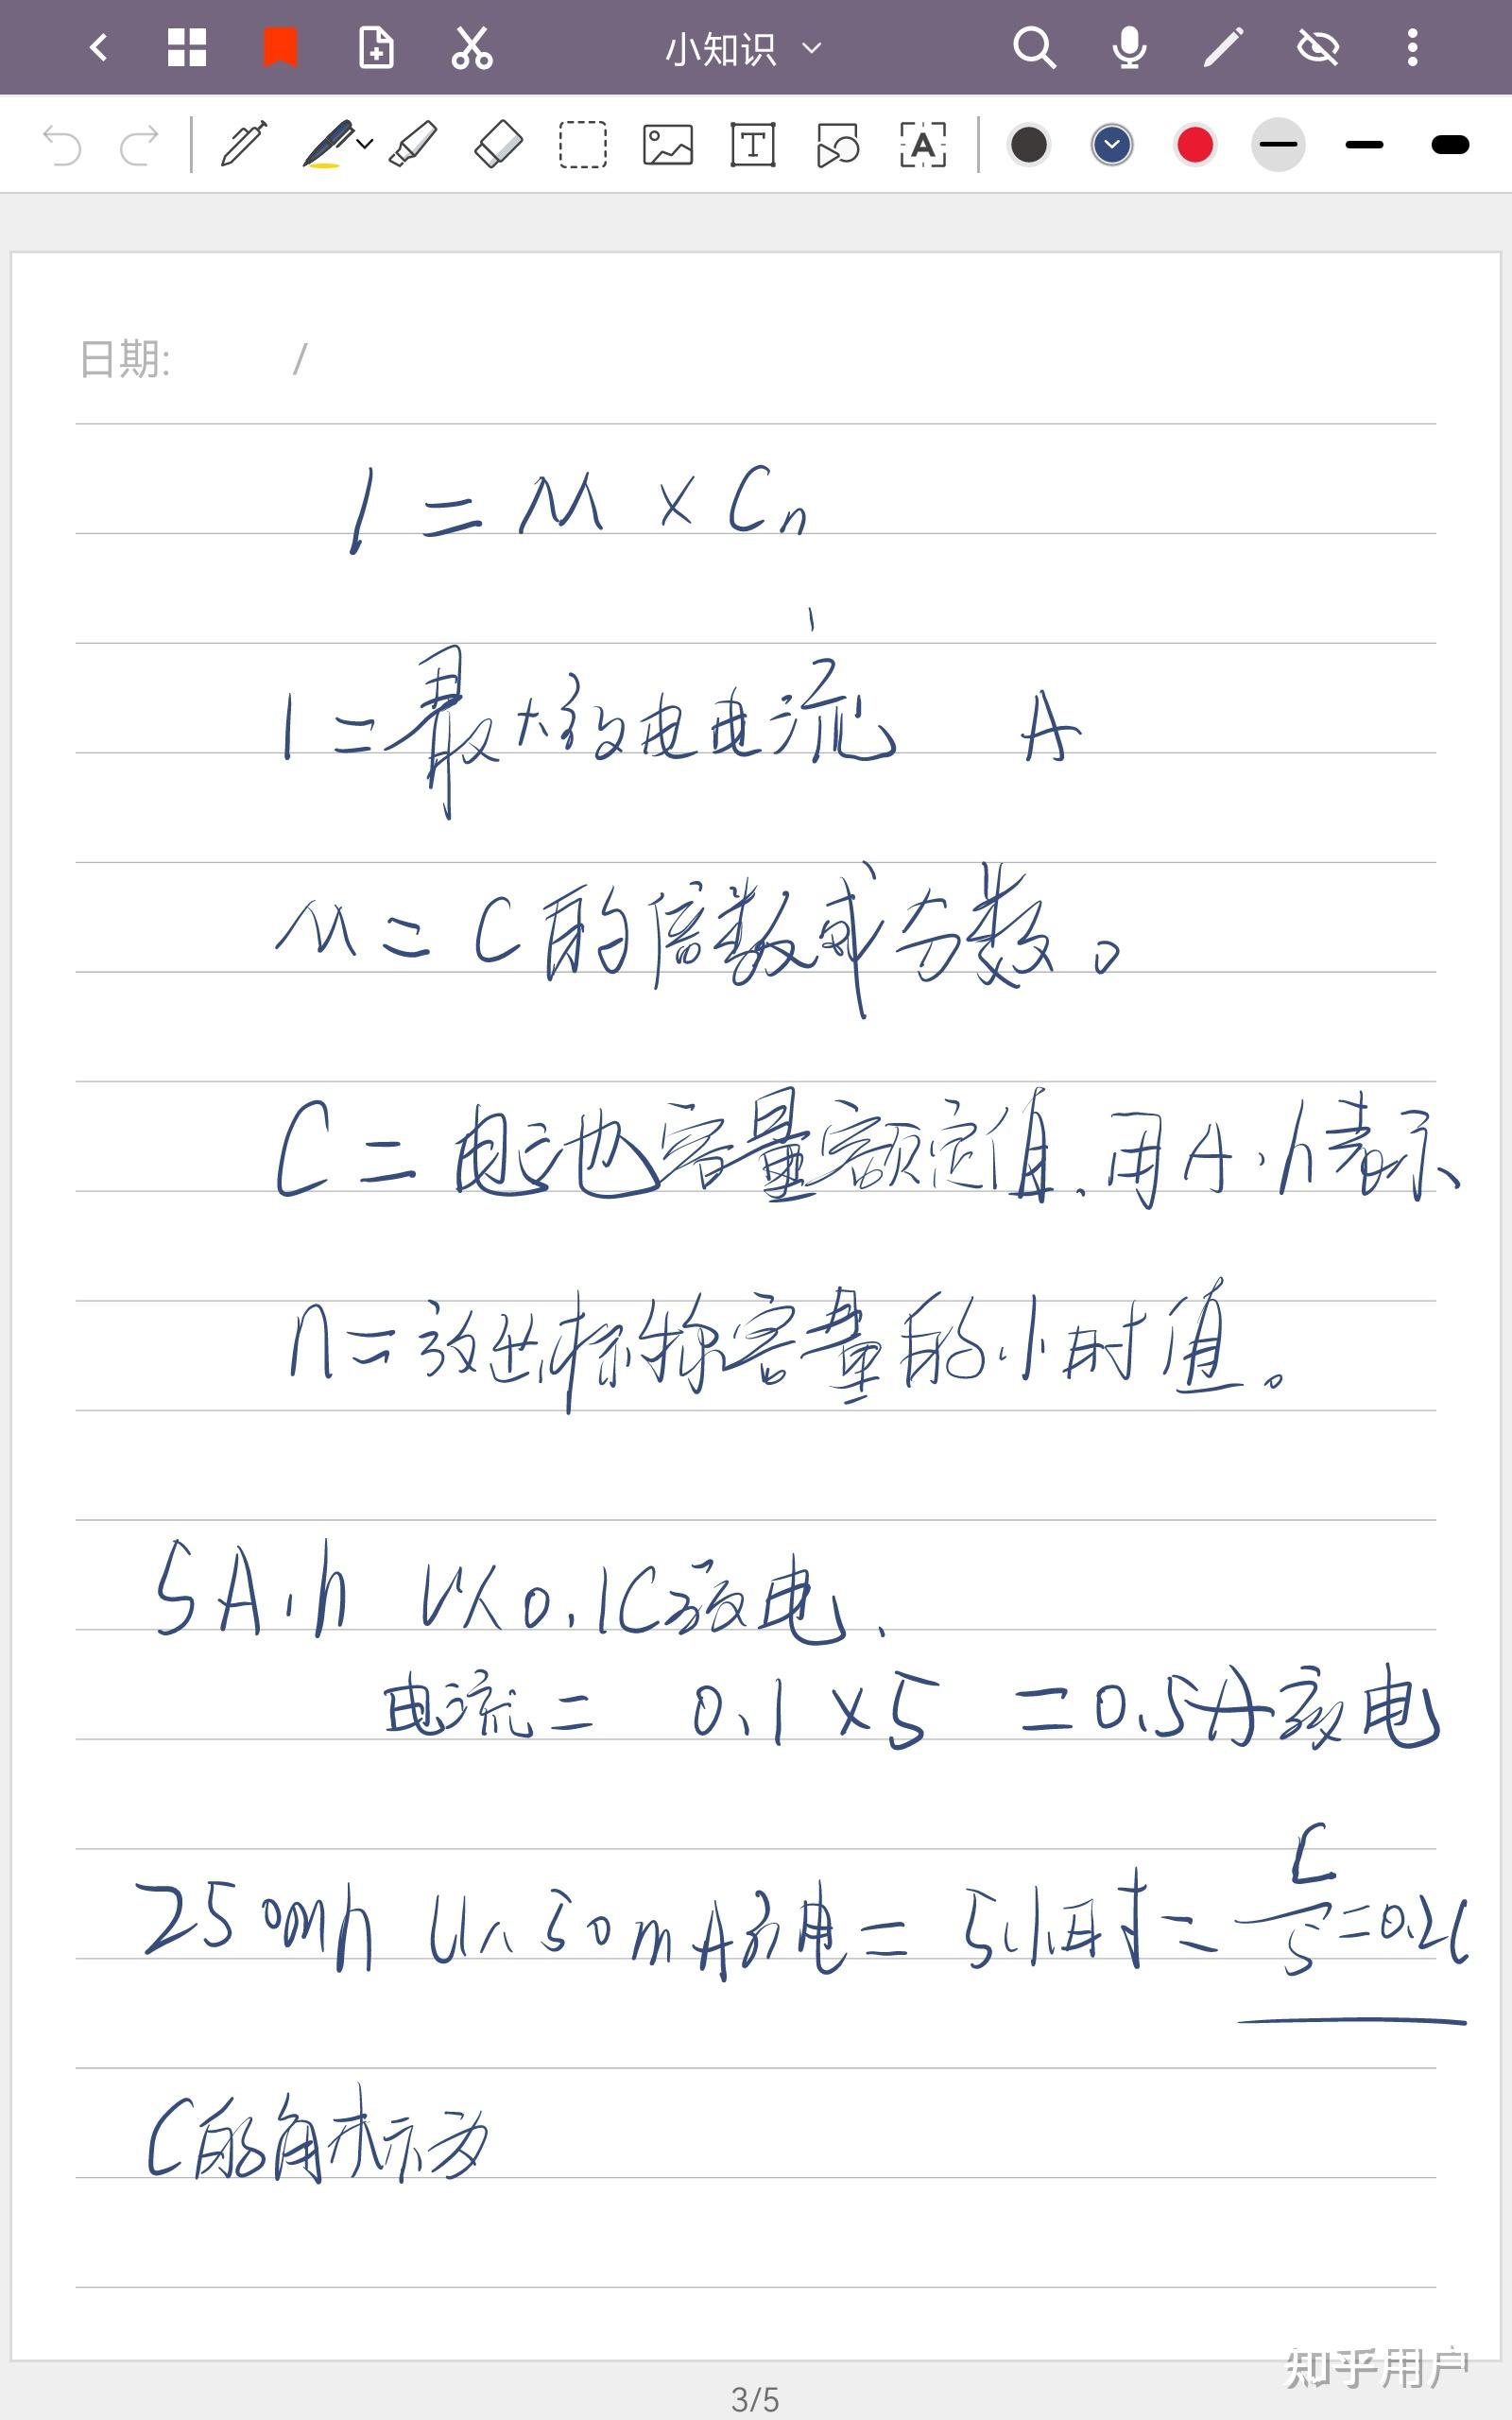 小知识
日期: /
I = M × Cn
I = 最大放电电流 A
M = C的倍数或分数。
C = 电池容量额定值.用A·h表示
n = 放出标称容量的小时值。
5A·h 以0.1C放电.
电流 = 0.1 × 5 = 0.5A放电
250mh 以50mA放电 = 5小时 = C/5 = 0.2C
C的角标示为
知乎用户
3/5